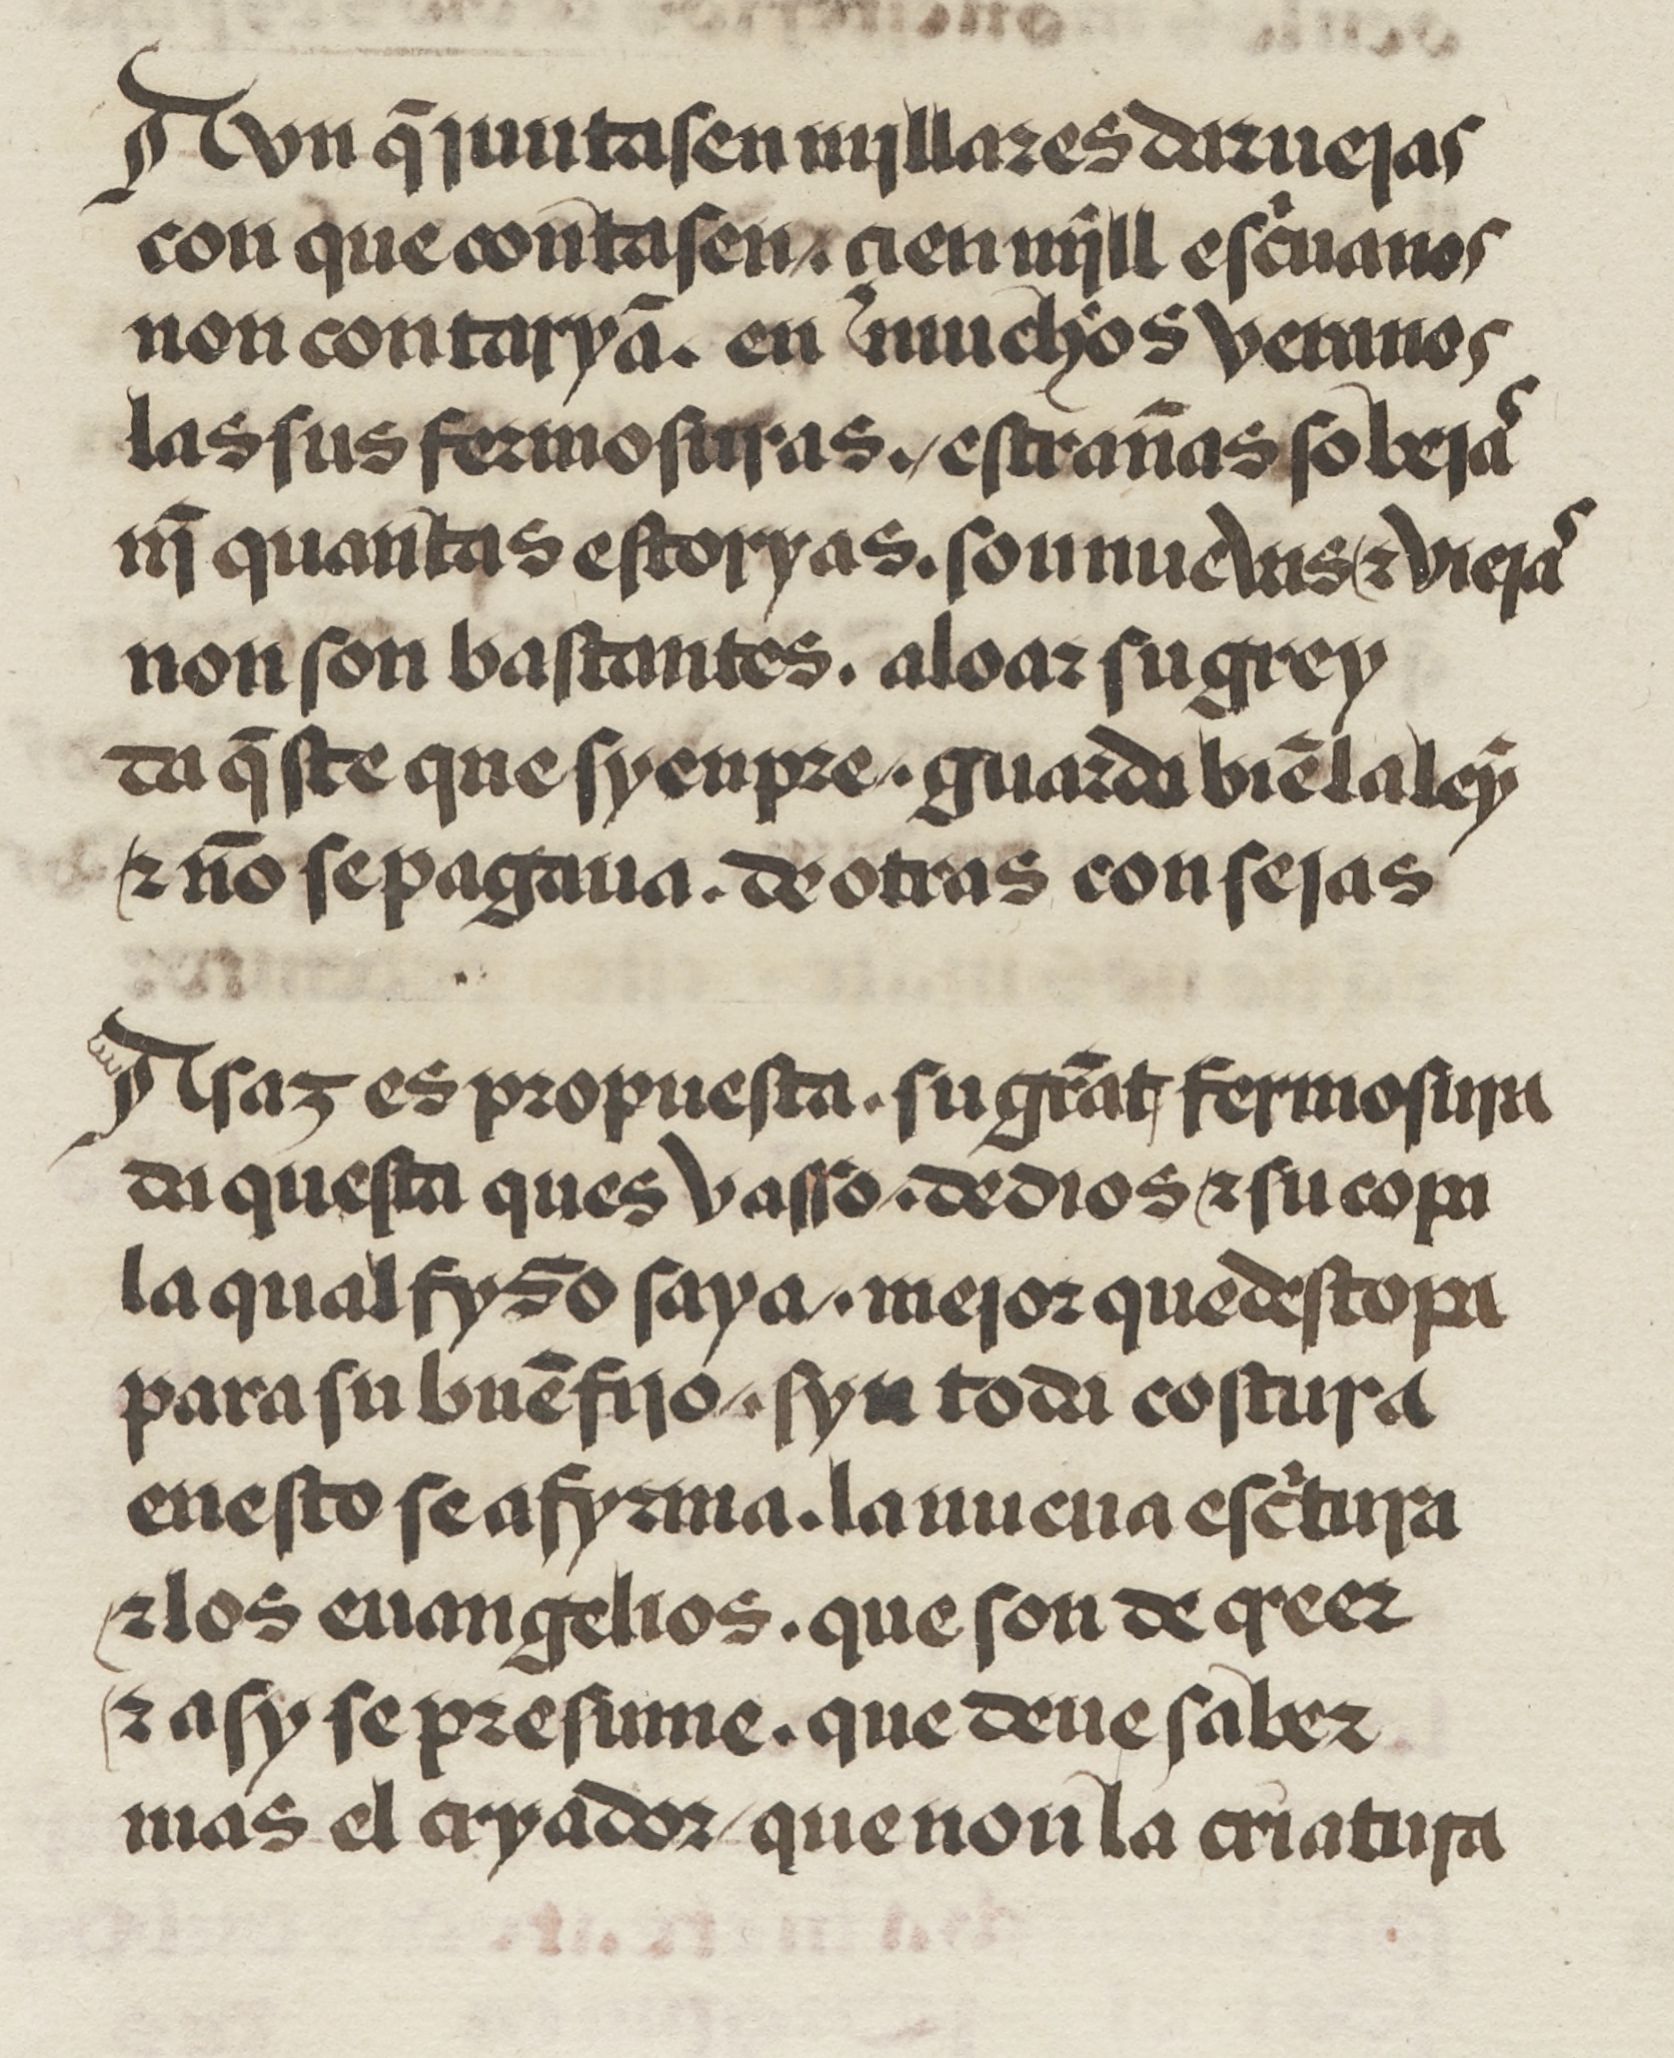 Avn q̄ juntasen mjllares darueias
con que contasen /. çien mjll esc̓uanos
non contaryā. en muchos veranos
las sus fermosuras ./ estrañas sobeias
nj̄ quantas estoryas. son nueuas ⁊ vieias
non son bastantes. aloar su grey
da q̄ste que syenpre /. guarda biē la ley
⁊ nō se pagaua. de otras conseias

Asaz es propuesta. su grāt fermosura
da questa ques vasso. de dios ⁊ su copa
la qual fyso saya /. mejor que destopa
para su buē fijo /. syn toda costura
enesto se afyrma. la nueua esc̓tura
⁊ los euangelios. que son de creer
⁊ asy se presume. que deue saber
mas el cryador / que non la criatura